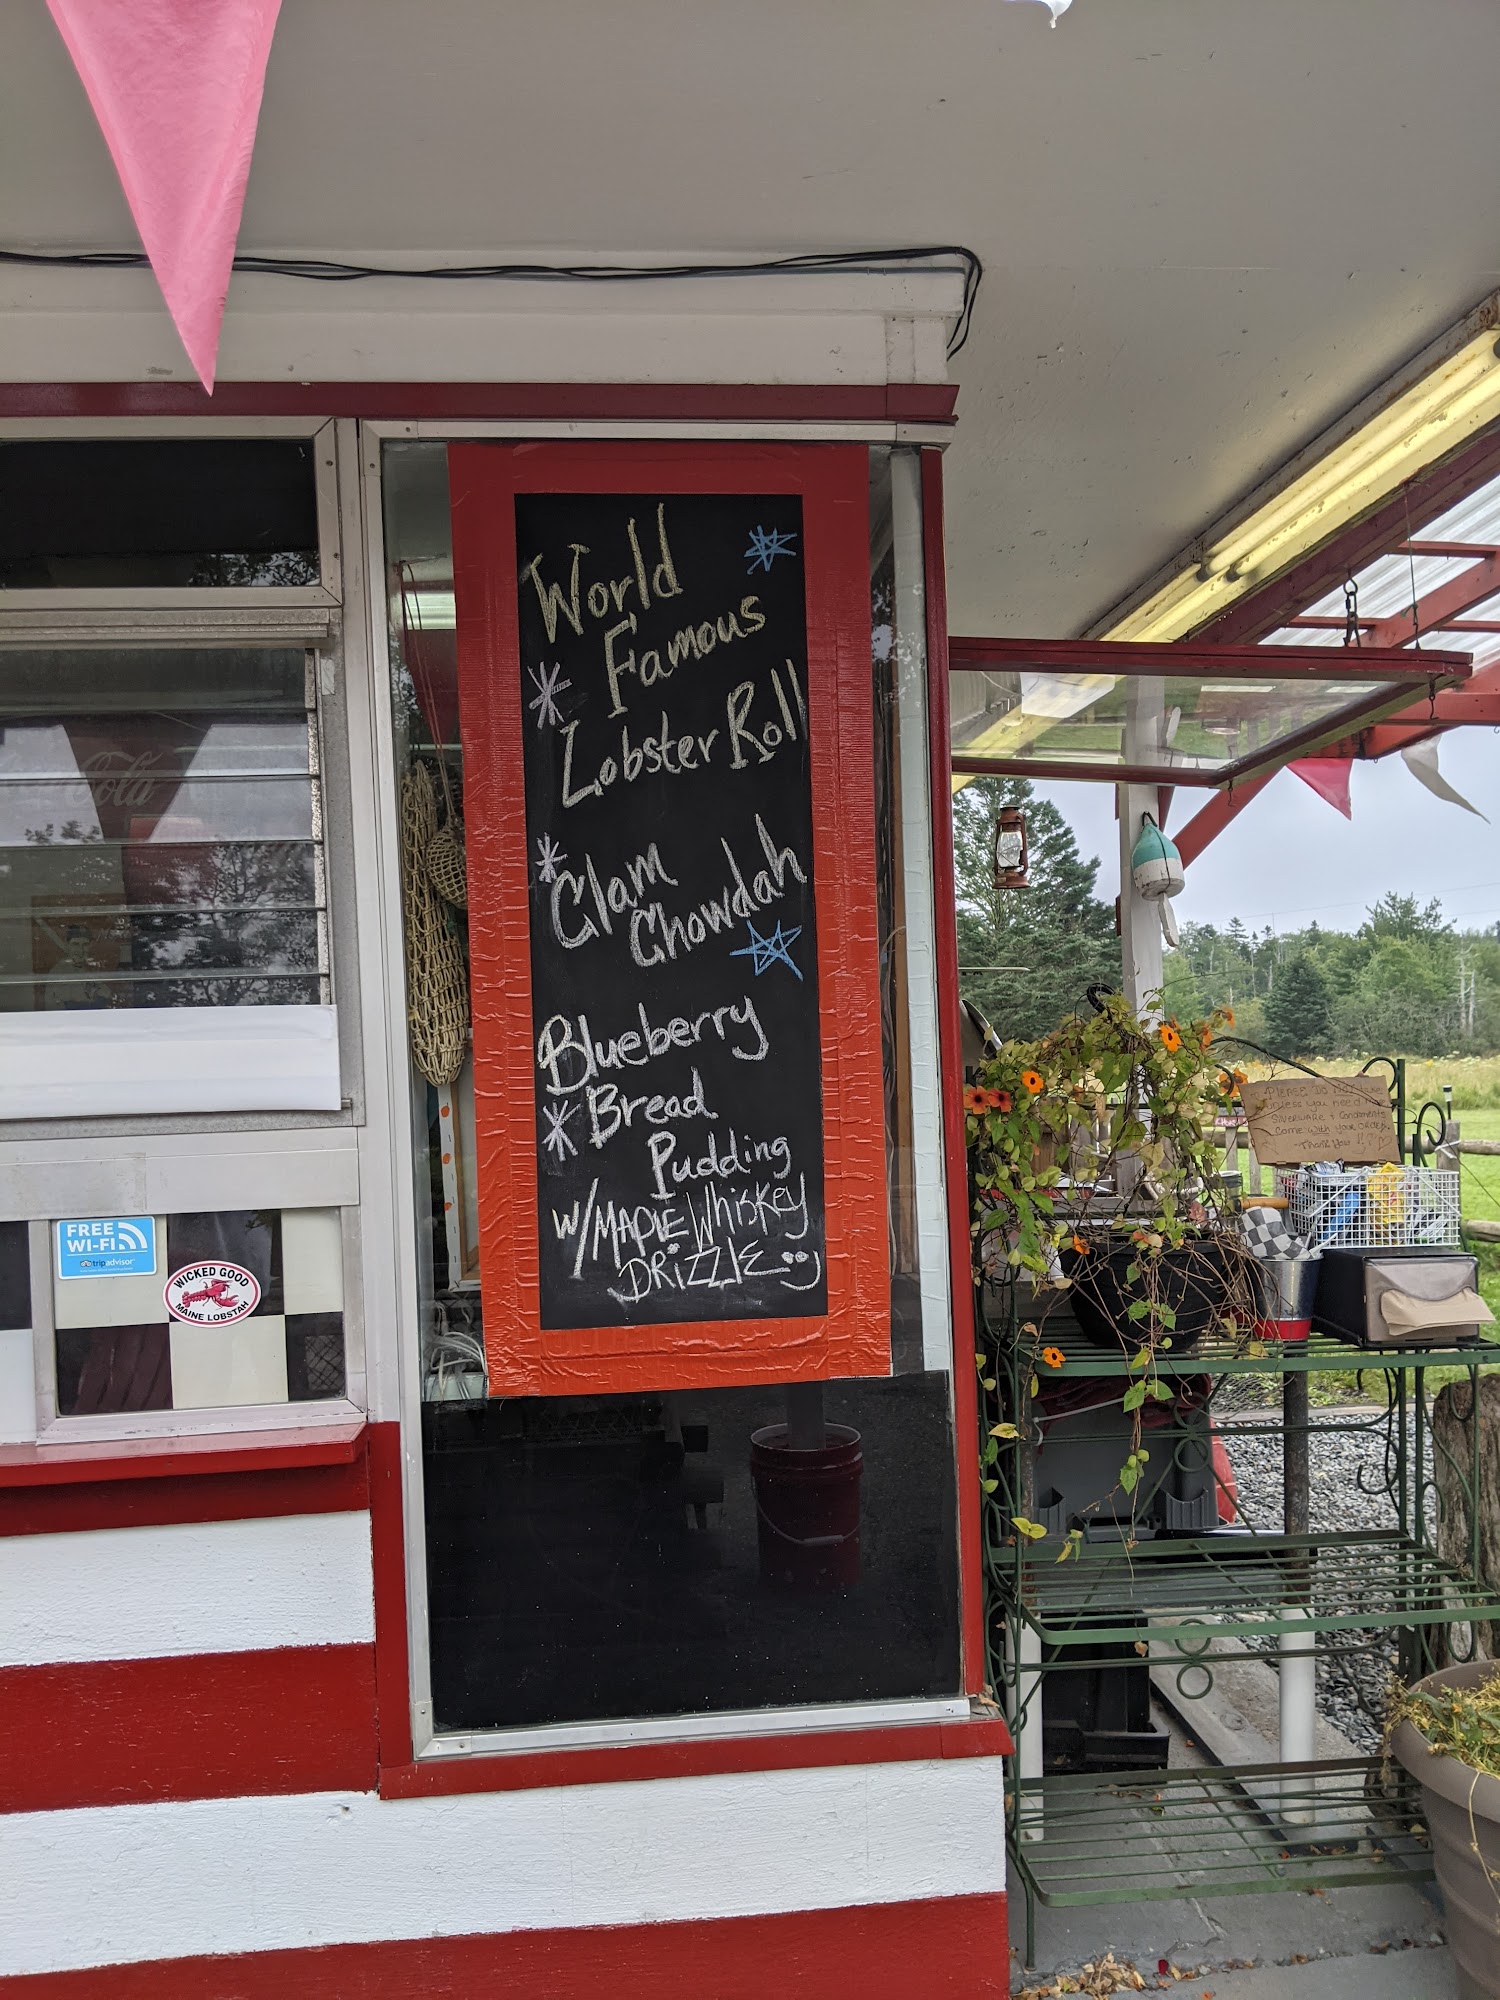 World
Famous
Lobster Roll
Clam
Chowdah
Blueberry
Bread
Pudding
w/MAPLE Whiskey
DRiZZLE
Coca-Cola
FREE
WI-FI
tripadvisor
WICKED GOOD
MAINE LOBSTAH
PLEASE DO NOT take
unless you need more
Silverware & Condiments
Come with your ORDER
Thank You!!